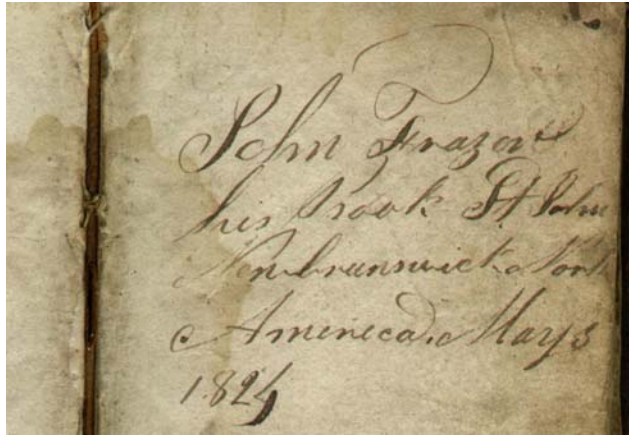 John Frazer
his book St John
Newbrunswick North
America May 3
1824